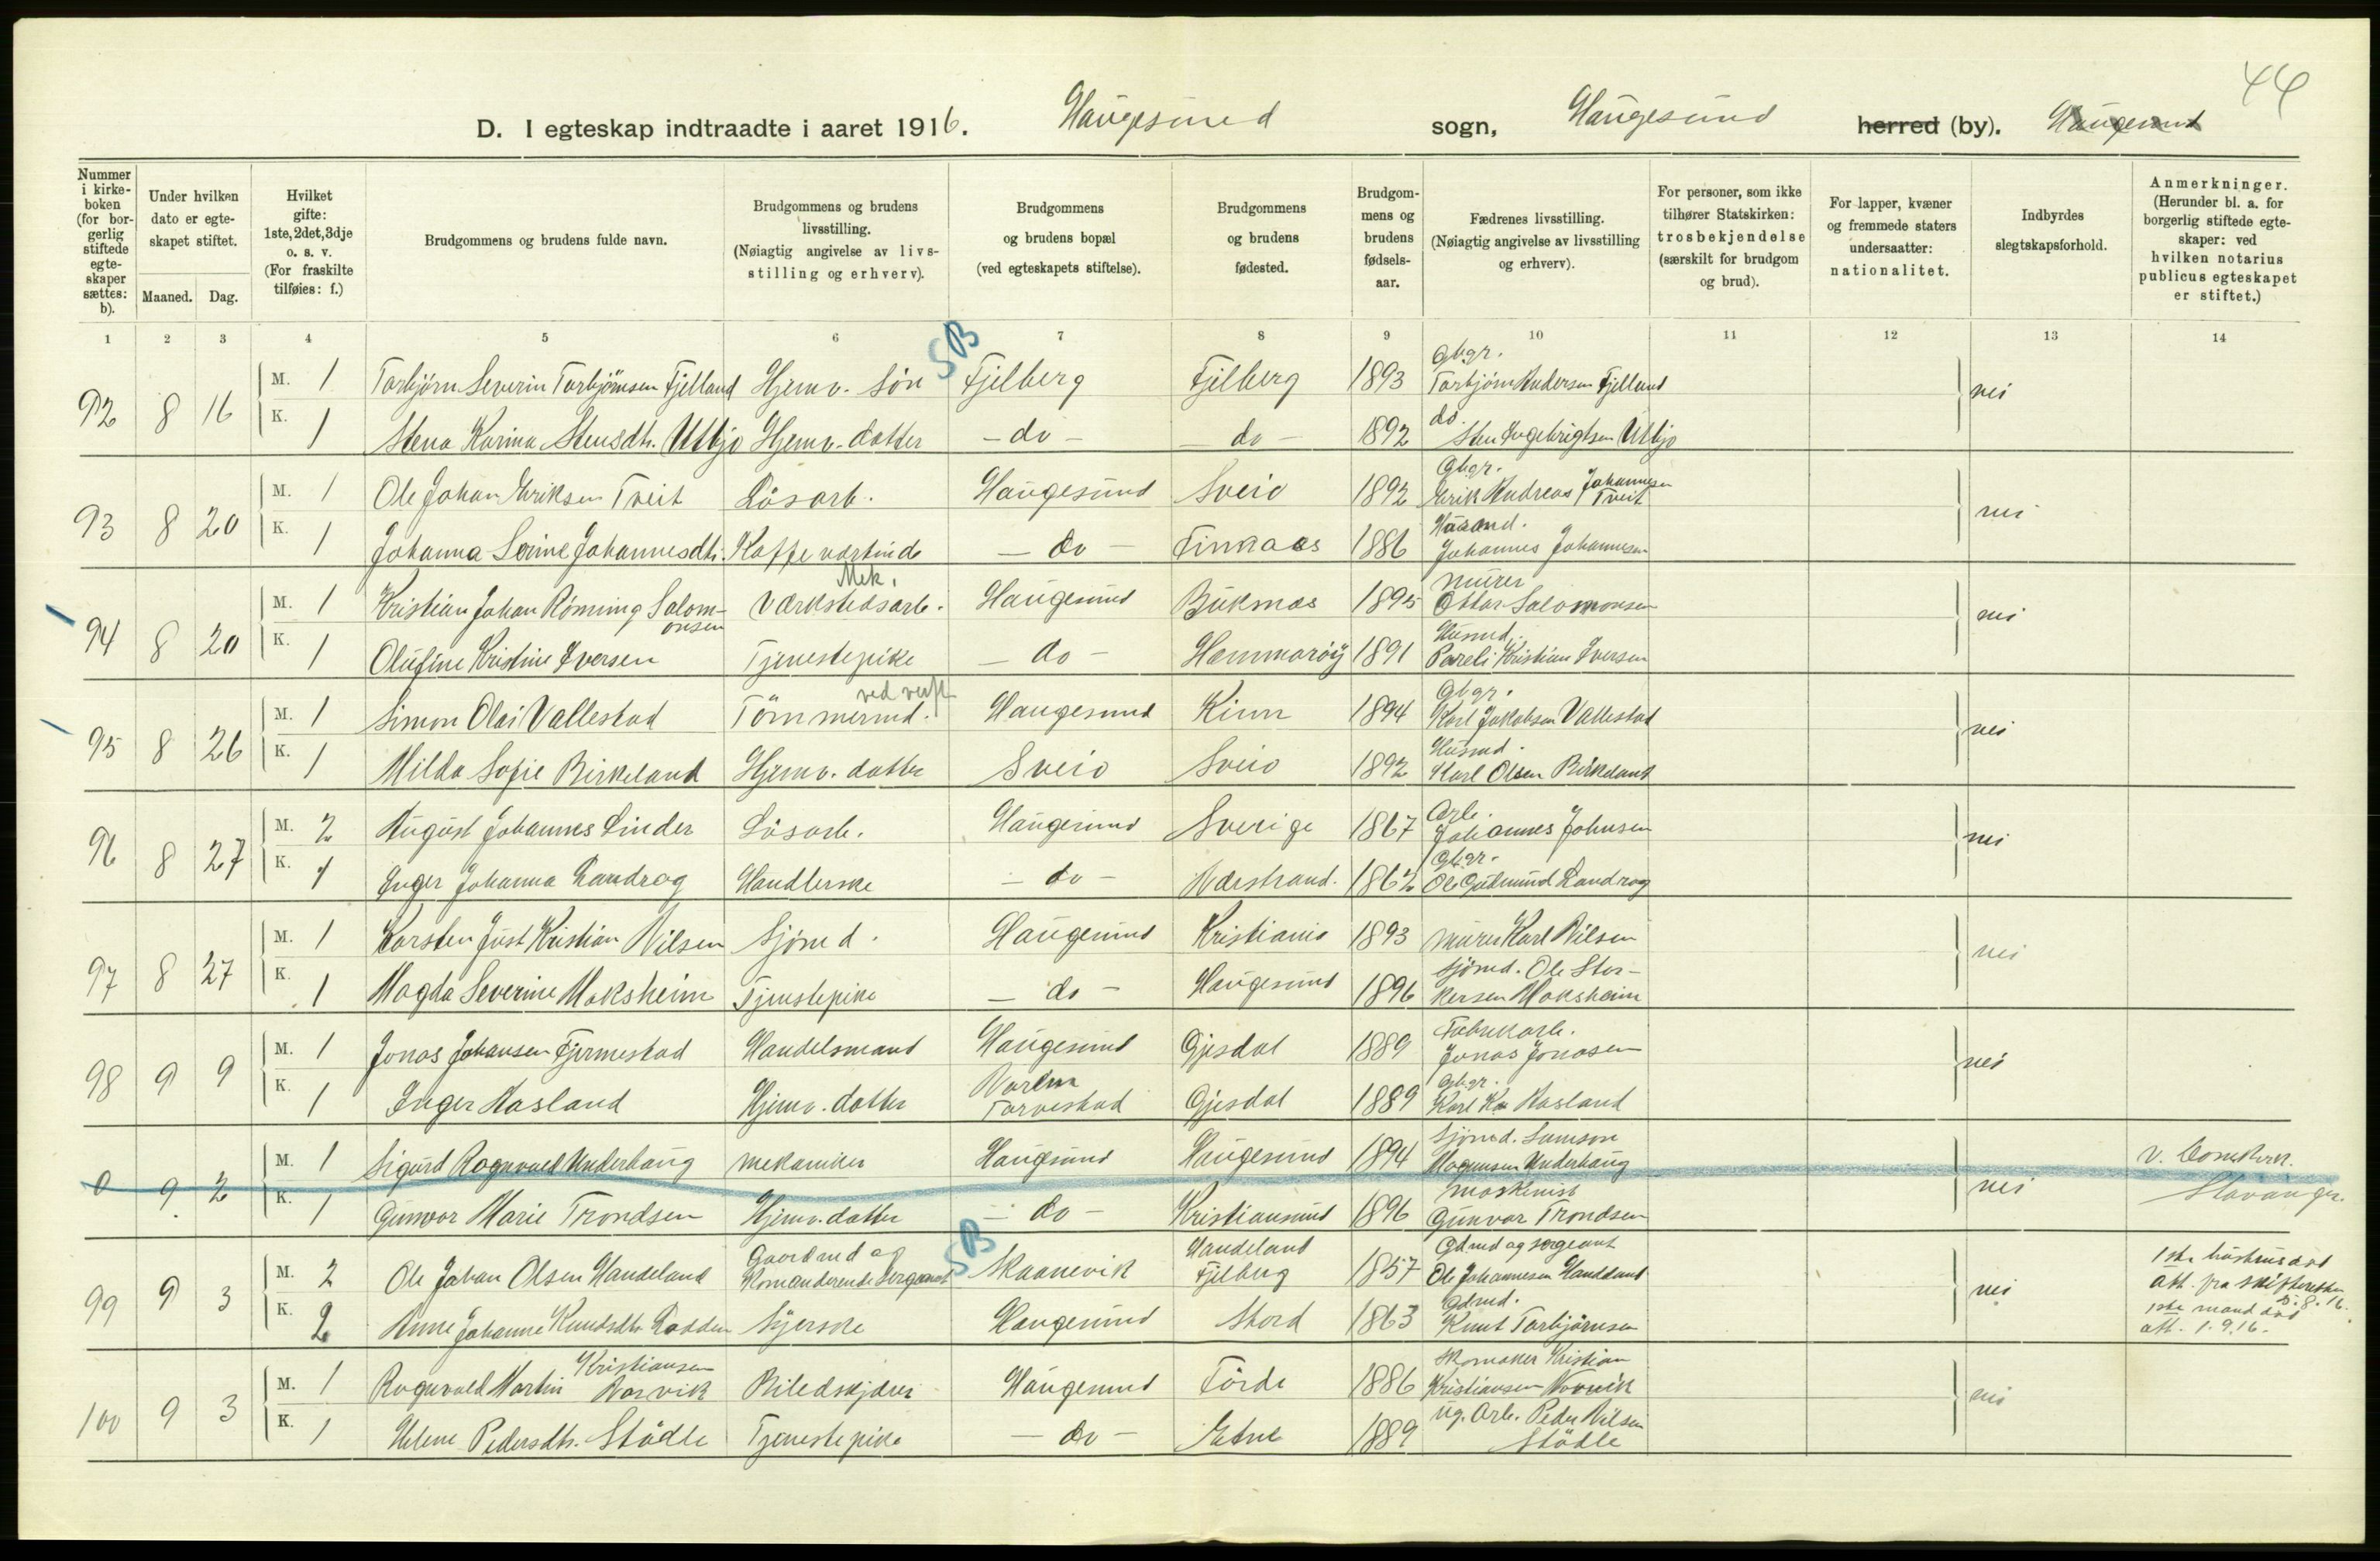 44
D. I egteskap indtraadte i aaret 1916. Haugesund sogn, Haugesund herred (by). Haugesund
Nummer i kirkeboken (for borgerlig stiftede egteskaper sættes: b).
Under hvilken dato er egteskapet stiftet.
Maaned. Dag.
Hvilket gifte: 1ste, 2det, 3dje o. s. v. (For fraskilte tilføies: f.)
Brudgommens og brudens fulde navn.
Brudgommens og brudens livsstilling. (Nøiagtig angivelse av livsstilling og erhverv).
Brudgommens og brudens bopæl (ved egteskapets stiftelse).
Brudgommens og brudens fødested.
Brudgommens og brudens fødselsaar.
Fædrenes livsstilling. (Nøiagtig angivelse av livsstilling og erhverv).
For personer, som ikke tilhører Statskirken: trosbekjendelse (særskilt for brudgom og brud).
For lapper, kvæner og fremmede staters undersaatter: nationalitet.
Indbyrdes slegtskapsforhold.
Anmerkninger. (Herunder bl. a. for borgerlig stiftede egteskaper: ved hvilken notarius publicus egteskapet er stiftet.)
1 2 3 4 5 6 7 8 9 10 11 12 13 14
92 8 16 M. 1 Torbjörn Severin Torbjörnsen Fjelland Hjemv. Sön SB Fjelberg Fjelberg 1893 Gbgr. Torbjörn Andersen Fjelland nei
K. 1 Stena Karina Stensdtr. Utbjo Hjemv. datter - do - - do - 1892 do. Sten Ingebrigtsen Utbjo
93 8 20 M. 1 Ole Johan Eriksen Tveit Lösarb. Haugesund Sveio 1892 Gbgr. Erik Andreas Johannesen Tveit nei
K. 1 Johanna Serine Johannesdtr. Kaffevertinde - do - Finnaas 1886 Husmd. Johannes Johannesen
94 8 20 M. 1 Kristian Johan Rönning Salomonsen Mek. Værkstedsarb. Haugesund Buksnes 1895 Murer Ottar Salomonsen nei
K. 1 Olufine Kristine Iversen Tjenestepike - do - Hammaröy 1891 Husmd. Pareli Kristian Iversen
95 8 26 M. 1 Simon Olai Vallestad Tömmermd. ved verft Haugesund Kinn 1894 Gbgr. Karl Jakobsen Vallestad nei
K. 1 Milda Sofie Birkeland Hjemv. datter Sveio Sveio 1892 Husmd. Karl Olsen Birkeland
96 8 27 M. 2 August Johannes Linder Lösarb. Haugesund Sverige 1867 Arb. Johannes Johnsen nei
K. 1 Inger Johanna Landrog Handlerske - do - Nærstrand. 1862 Gbgr. Ole Gudmund Landrog
97 8 27 M. 1 Karsten Just Kristian Nilsen Sjömd. Haugesund Kristiania 1893 Murer Karl Nilsen nei
K. 1 Magda Severine Moksheim Tjenstepike - do - Haugesund 1896 Sjömd. Ole Storkersen Moksheim
98 9 9 M. 1 Jonas Johansen Fjermestad Handelsmand Haugesund Gjesdal 1889 Fabrikarb. Jonas Jonasen nei
K. 1 Inger Hasland Hjemv. datter Torvestad Gjesdal 1889 Gbgr. Karl Hasland
0 9 2 M. 1 Sigurd Rognvald Underhaug Mekaniker Haugesund Haugesund 1894 Sjömd. Samson Magnusen Underhaug nei v. Domkirk. Stavanger.
K. 1 Gunvor Marie Trondsen Hjemv. datter - do - Kristiansund 1896 Maskinist Gunvar Trondsen
99 9 3 M. 2 Ole Johan Olsen Handeland Gaardmd og Komanderende Sergeant SB Skaanevik Handeland Fjelberg 1857 Gdmd og sergeant Ole Johannesen Handeland nei 1ste hustru död att. fra skifteretten 5.8.16.
K. 2 Anne Johanne Knudsdtr. Lodden Syerske Haugesund Stord 1863 Gdmd. Knut Torbjörnsen 1ste mand död att. 1.9.16.
100 9 3 M. 1 Rognvald Martin Kristiansen Varvik Biledskjærer Haugesund Förde 1886 Skomaker Kristian Kristiansen Varvik nei
K. 1 Helene Pedersdtr. Stödle Tjenestepike - do - Etne 1889 ug. Arb. Peder Nilsen Stödle